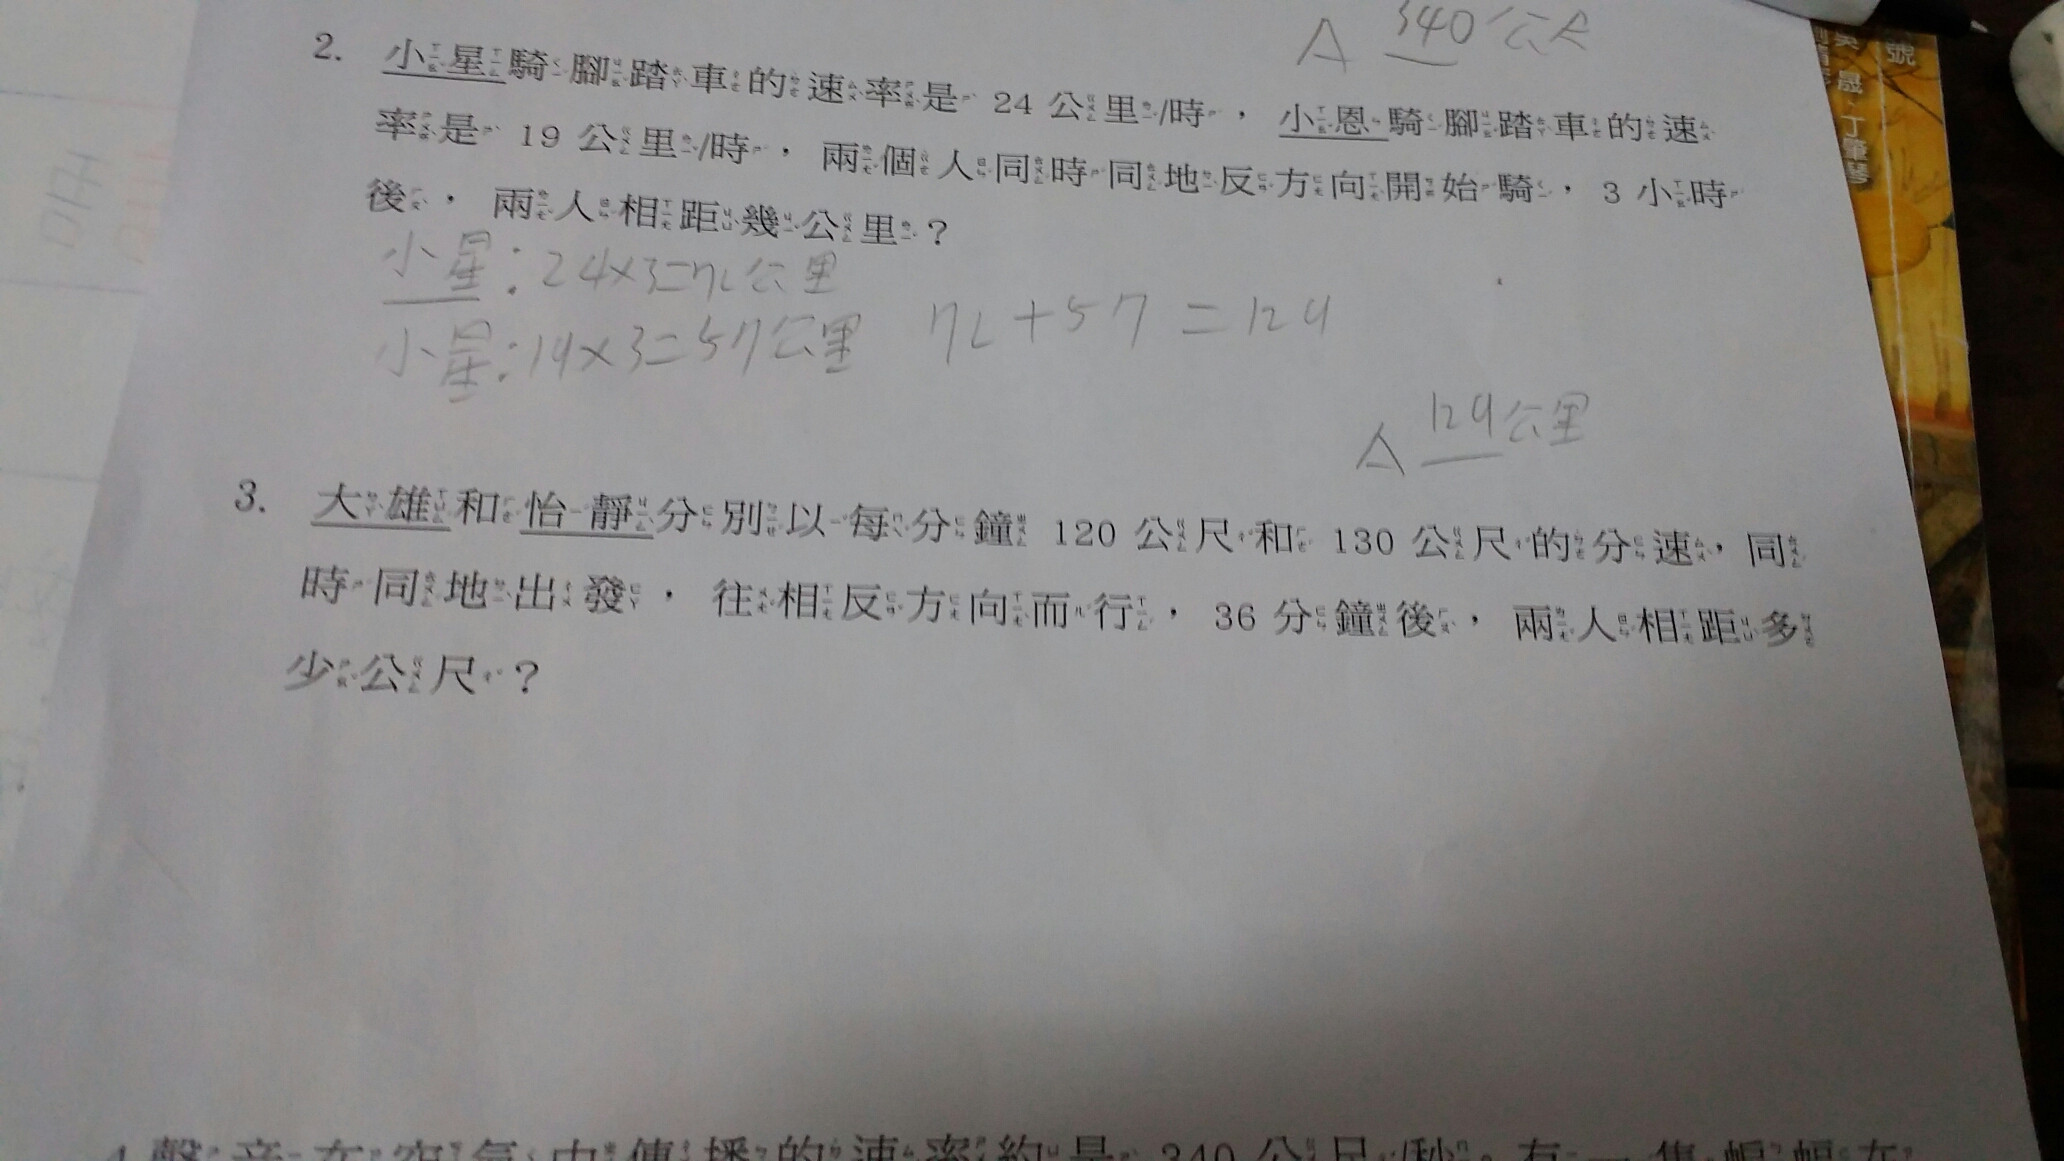 A 340公尺
2. 小星騎腳踏車的速率是 24 公里/時，小恩騎腳踏車的速
率是 19 公里/時，兩個人同時同地反方向開始騎，3 小時
後，兩人相距幾公里？
小星:24×3=72公里
小星:19×3=57公里 72+57=129
A 129公里
3. 大雄和怡靜分別以每分鐘 120 公尺和 130 公尺的分速，同
時同地出發，往相反方向而行，36 分鐘後，兩人相距多
少公尺？
4.聲音在空氣中傳播的速率約是 340 公尺/秒。有一隻蝙蝠在
號
晟、丁肇琴